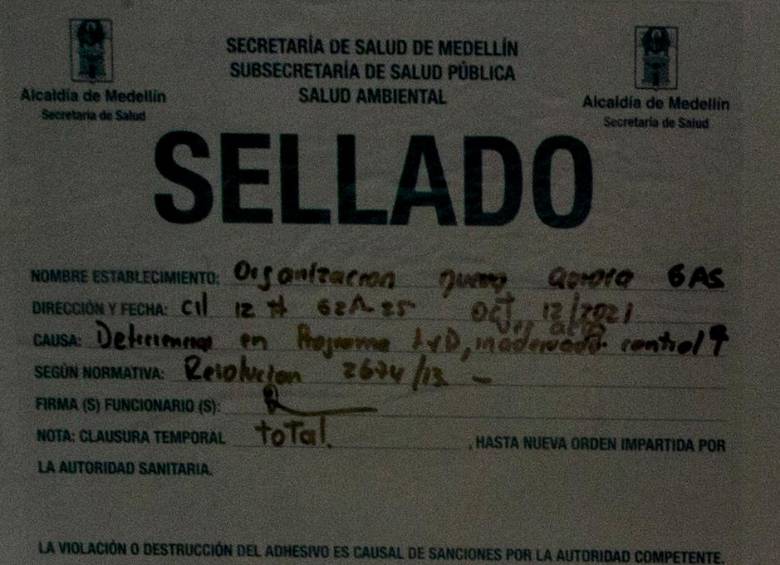 SECRETARÍA DE SALUD DE MEDELLÍN
SUBSECRETARÍA DE SALUD PÚBLICA
SALUD AMBIENTAL
Alcaldía de Medellín
Secretaría de Salud
Alcaldía de Medellín
Secretaría de Salud
SELLADO
NOMBRE ESTABLECIMIENTO: Organizacion nueva aurora SAS
DIRECCIÓN Y FECHA: Cll 12 # 62A-25 Oct, 12/2021
CAUSA: en Programa LyD, control
SEGÚN NORMATIVA: Resolucion 2674/13 -
FIRMA (S) FUNCIONARIO (S):
NOTA: CLAUSURA TEMPORAL total. , HASTA NUEVA ORDEN IMPARTIDA POR
LA AUTORIDAD SANITARIA.
LA VIOLACIÓN O DESTRUCCIÓN DEL ADHESIVO ES CAUSAL DE SANCIONES POR LA AUTORIDAD COMPETENTE.